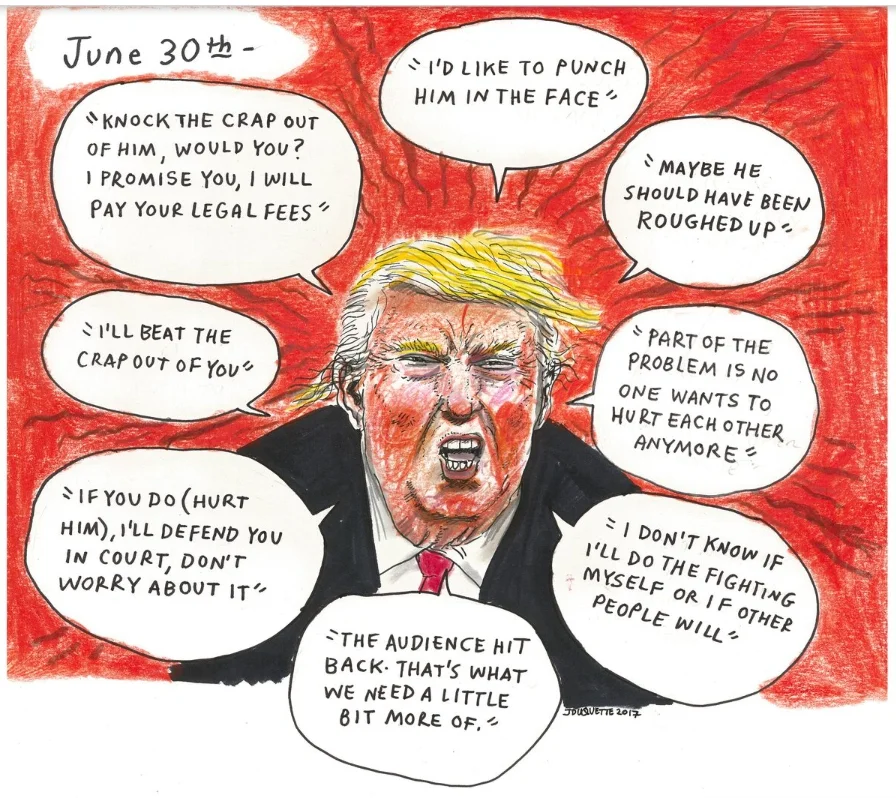 June 30th -
"I'D LIKE TO PUNCH
HIM IN THE FACE"
"KNOCK THE CRAP OUT
OF HIM, WOULD YOU?
I PROMISE YOU, I WILL
PAY YOUR LEGAL FEES"
"MAYBE HE
SHOULD HAVE BEEN
ROUGHED UP"
"I'LL BEAT THE
CRAP OUT OF YOU"
"PART OF THE
PROBLEM IS NO
ONE WANTS TO
HURT EACH OTHER
ANYMORE"
"IF YOU DO (HURT
HIM), I'LL DEFEND YOU
IN COURT, DON'T
WORRY ABOUT IT"
"I DON'T KNOW IF
I'LL DO THE FIGHTING
MYSELF OR IF OTHER
PEOPLE WILL"
"THE AUDIENCE HIT
BACK. THAT'S WHAT
WE NEED A LITTLE
BIT MORE OF."
JDUQUETTE 2017